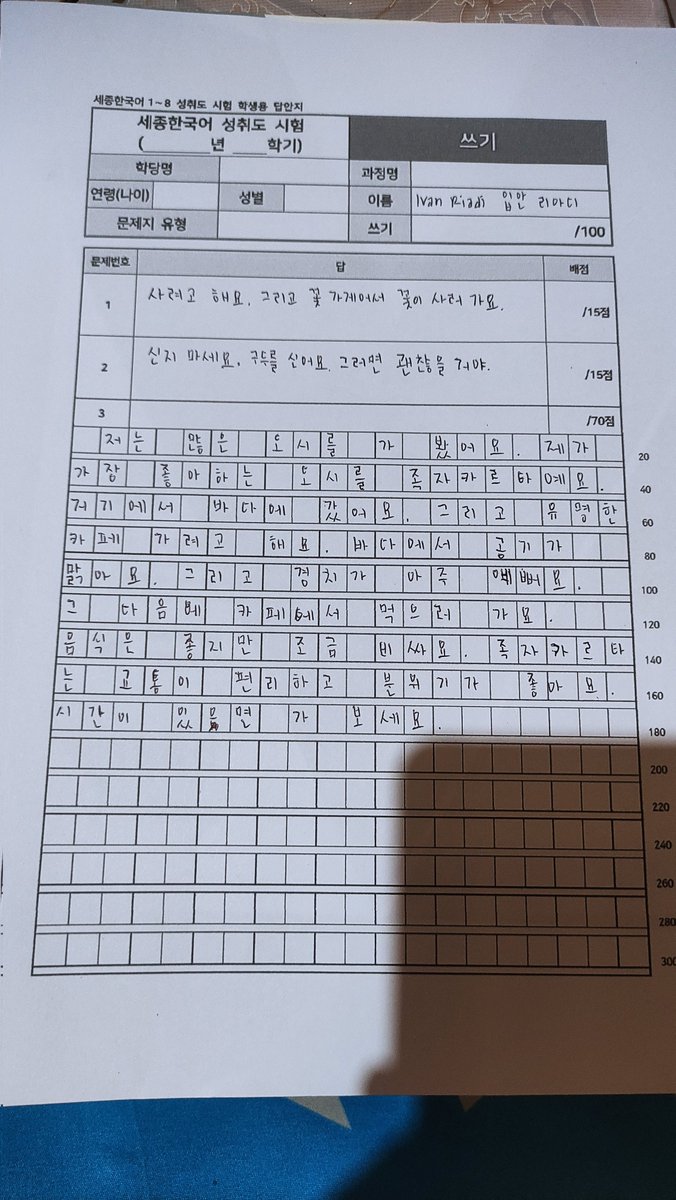 세종한국어 1~8 성취도 시험 학생용 답안지
세종한국어 성취도 시험
(          년      학기)
쓰기
학당명
과정명
연령(나이)
성별
이름
Ivan Riadi 입안 리아디
문제지 유형
쓰기
/100
문제번호
답
배점
1
사려고 해요. 그리고 꽃 가게에서 꽃이 사러 가요.
/15점
2
신지 마세요. 구두를 신어요. 그러면 괜찮을 거야.
/15점
3
/70점
저는 많은 도시를 가 봤어요. 제가
20
가장 좋아하는 도시를 족자카르타예요.
40
저기에서 바다에 갔어요. 그리고 유명한
60
카페 가려고 해요. 바다에서 공기가
80
맑아요. 그리고 경치가 아주 예뻐요.
100
그 다음에 카페에서 먹으러 가요.
120
음식은 좋지만 조금 비싸요. 족자카르타
140
는 교통이 편리하고 분위기가 좋아요.
160
시간이 있으면 가 보세요.
180
200
220
240
260
280
300